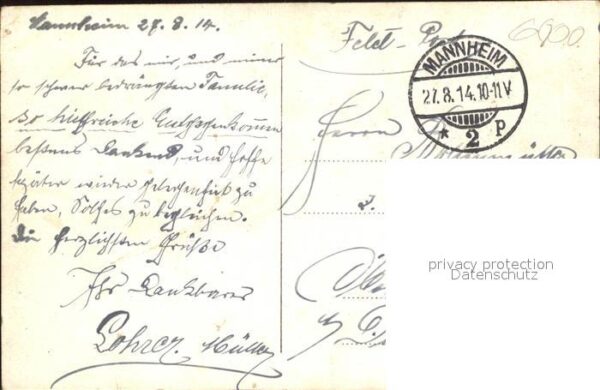 Mannheim 27.8.14.
Für das mir, und meiner
so schwer bedrängten Familie,
so hilfreiche Entgegenkommen
bestens dankend, und hoffe
später wieder Gelegenheit zu
haben, Solches zu begleichen.
Die herzlichsten Grüße
Ihr Dankbarer
Müller
Feld-Post
6900.
MANNHEIM
27.8.14.10-11V
* 2 P
Herrn
privacy protection
Datenschutz